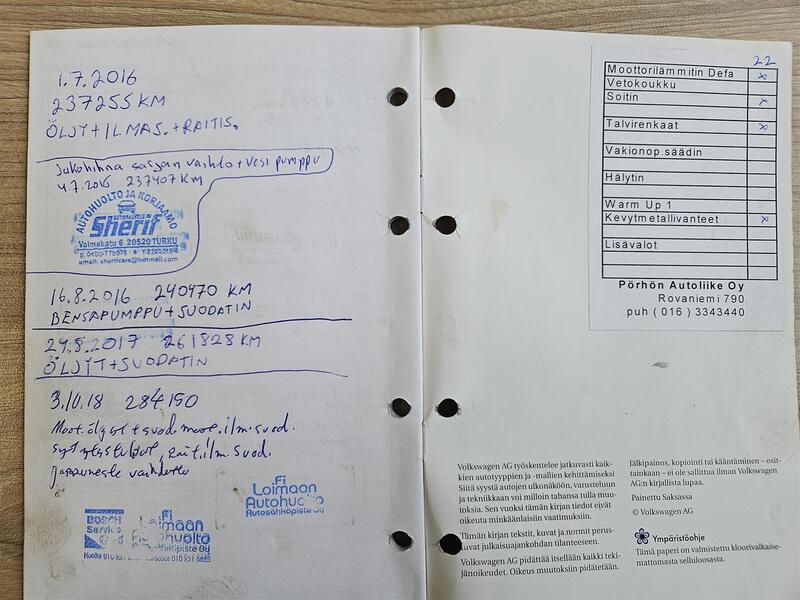 1.7.2016
237255 KM
ÖLJYT+ILMAS.+RAITIS.
Jakohihna sarjan vaihto+vesi pumppu
4.7.2016 237407 KM
AUTOHUOLTO JA KORJAAMO
AUTOPALVELU
Sherif
Voimakatu 6 20520 TURKU
email: sherifcars@hotmail.com
16.8.2016 240470 KM
BENSAPUMPPU+SUODATIN
29.8.2017 261828 KM
ÖLJYT+SUODATIN
3.10.18 284150
Moot.öljyt + suod moot.ilm.suod.
sytytystulpat, rait.ilm.suod.
jarruneste vaihdettu
.Fi
Loimaan
Autohuolto
Autosähköpiste Oy
BOSCH
Service
.Fi
Loimaan
Autohuolto
22
Moottorilämmitin Defa x
Vetokoukku
Soitin x
Talvirenkaat x
Vakionop.säädin
Hälytin
Warm Up 1
Kevytmetallivanteet x
Lisävalot
Pörhön Autoliike Oy
Rovaniemi 790
puh ( 016 ) 3343440
Volkswagen AG työskentelee jatkuvasti kaik-
kien autotyyppien ja -mallien kehittämiseksi
Siitä syystä autojen ulkonäköön, varusteluun
ja tekniikkaan voi milloin tahansa tulla muu-
toksia. Sen vuoksi tämän kirjan tiedot eivät
oikeuta minkäänlaisiin vaatimuksiin.
Tämän kirjan tekstit, kuvat ja normit perus-
tuvat julkaisuajankohdan tilanteeseen.
Volkswagen AG pidättää itsellään kaikki teki-
jänoikeudet. Oikeus muutoksiin pidätetään.
Jälkipainos, kopiointi tai kääntäminen – osit-
tainkaan – ei ole sallittua ilman Volkswagen
AG:n kirjallista lupaa.
Painettu Saksassa
© Volkswagen AG
Ympäristöohje
Tämä paperi on valmistettu kloorivalkaise-
mattomasta selluloosasta.